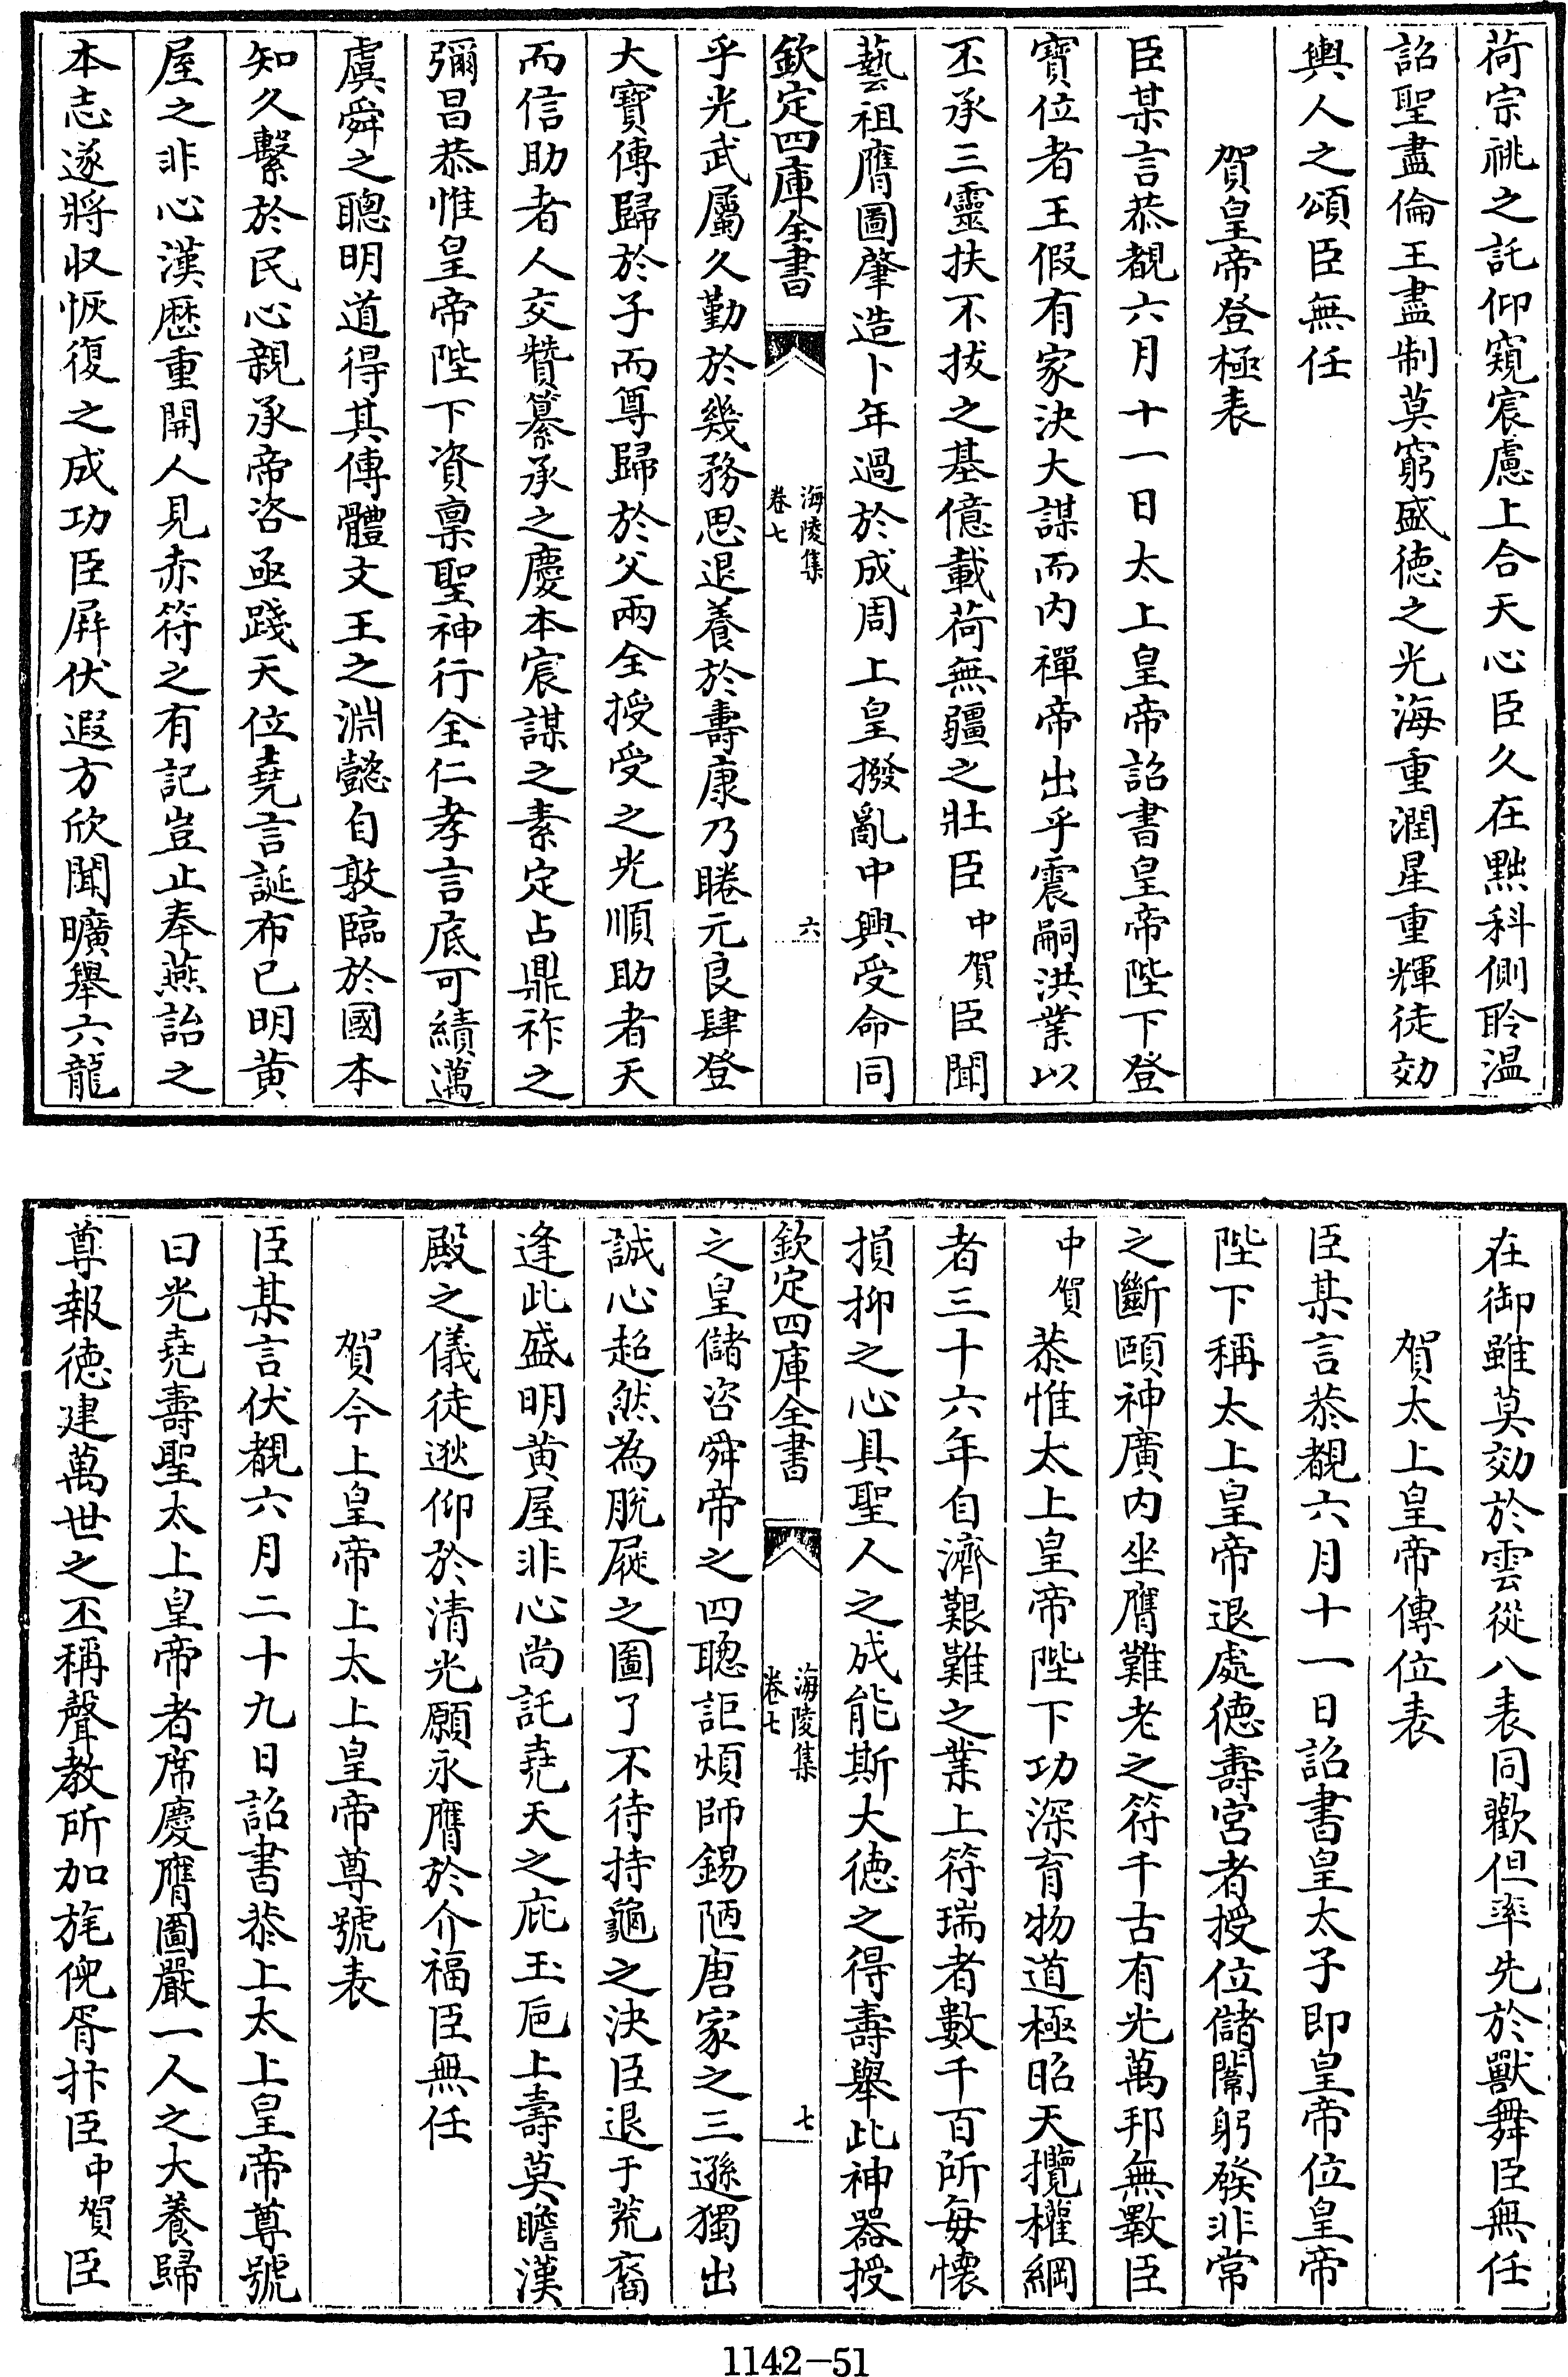 荷宗祧之託仰窺宸慮上合天心臣久在黜科側聆温
詔聖盡倫王盡制莫窮盛徳之光海重潤星重輝徒効
輿人之頌臣無任
賀皇帝登極表
臣某言恭覩六月十一日太上皇帝詔書皇帝陛下登
寶位者王假有家決大謀而内禪帝出乎震嗣洪業以
丕承三靈扶不拔之基億載荷無疆之壯臣中賀臣聞
藝祖膺圖肇造卜年過於成周上皇撥亂中興受命同
欽定四庫全書
海陵集
卷七
六
乎光武屬久勤於幾務思退養於壽康乃睠元良肆登
大寶傳歸於子而尊歸於父兩全授受之光順助者天
而信助者人交贊纂承之慶本宸謀之素定占鼎祚之
彌昌恭惟皇帝陛下資稟聖神行全仁孝言底可績邁
虞舜之聰明道得其傳體文王之淵懿自敦臨於國本
知久繫於民心親承帝咨亟踐天位堯言誕布已明黄
屋之非心漢厯重開人見赤符之有記豈止奉燕詒之
本志遂將収恢復之成功臣屛伏遐方欣聞曠舉六龍
在御雖莫効於雲從八表同歡但率先於獸舞臣無任
賀太上皇帝傳位表
臣某言恭覩六月十一日詔書皇太子即皇帝位皇帝
陛下稱太上皇帝退處徳壽宮者授位儲闈躬發非常
之斷頤神廣内坐膺難老之符千古有光萬邦無斁臣
中賀恭惟太上皇帝陛下功深育物道極昭天攬權綱
者三十六年自濟艱難之業上符瑞者數千百所每懷
損抑之心具聖人之成能斯大徳之得壽舉此神器授
欽定四庫全書
海陵集
卷七
七
之皇儲咨舜帝之四聰詎煩師錫陋唐家之三遜獨出
誠心超然為脱屣之圖了不待持龜之決臣退于荒裔
逢此盛明黄屋非心尚託堯天之庇玉巵上壽莫瞻漢
殿之儀徒逖仰於清光願永膺於介福臣無任
賀今上皇帝上太上皇帝尊號表
臣某言伏覩六月二十九日詔書恭上太上皇帝尊號
曰光堯壽聖太上皇帝者席慶膺圖嚴一人之大養歸
尊報徳建萬世之丕稱聲教所加旄倪胥抃臣中賀臣
1142-51